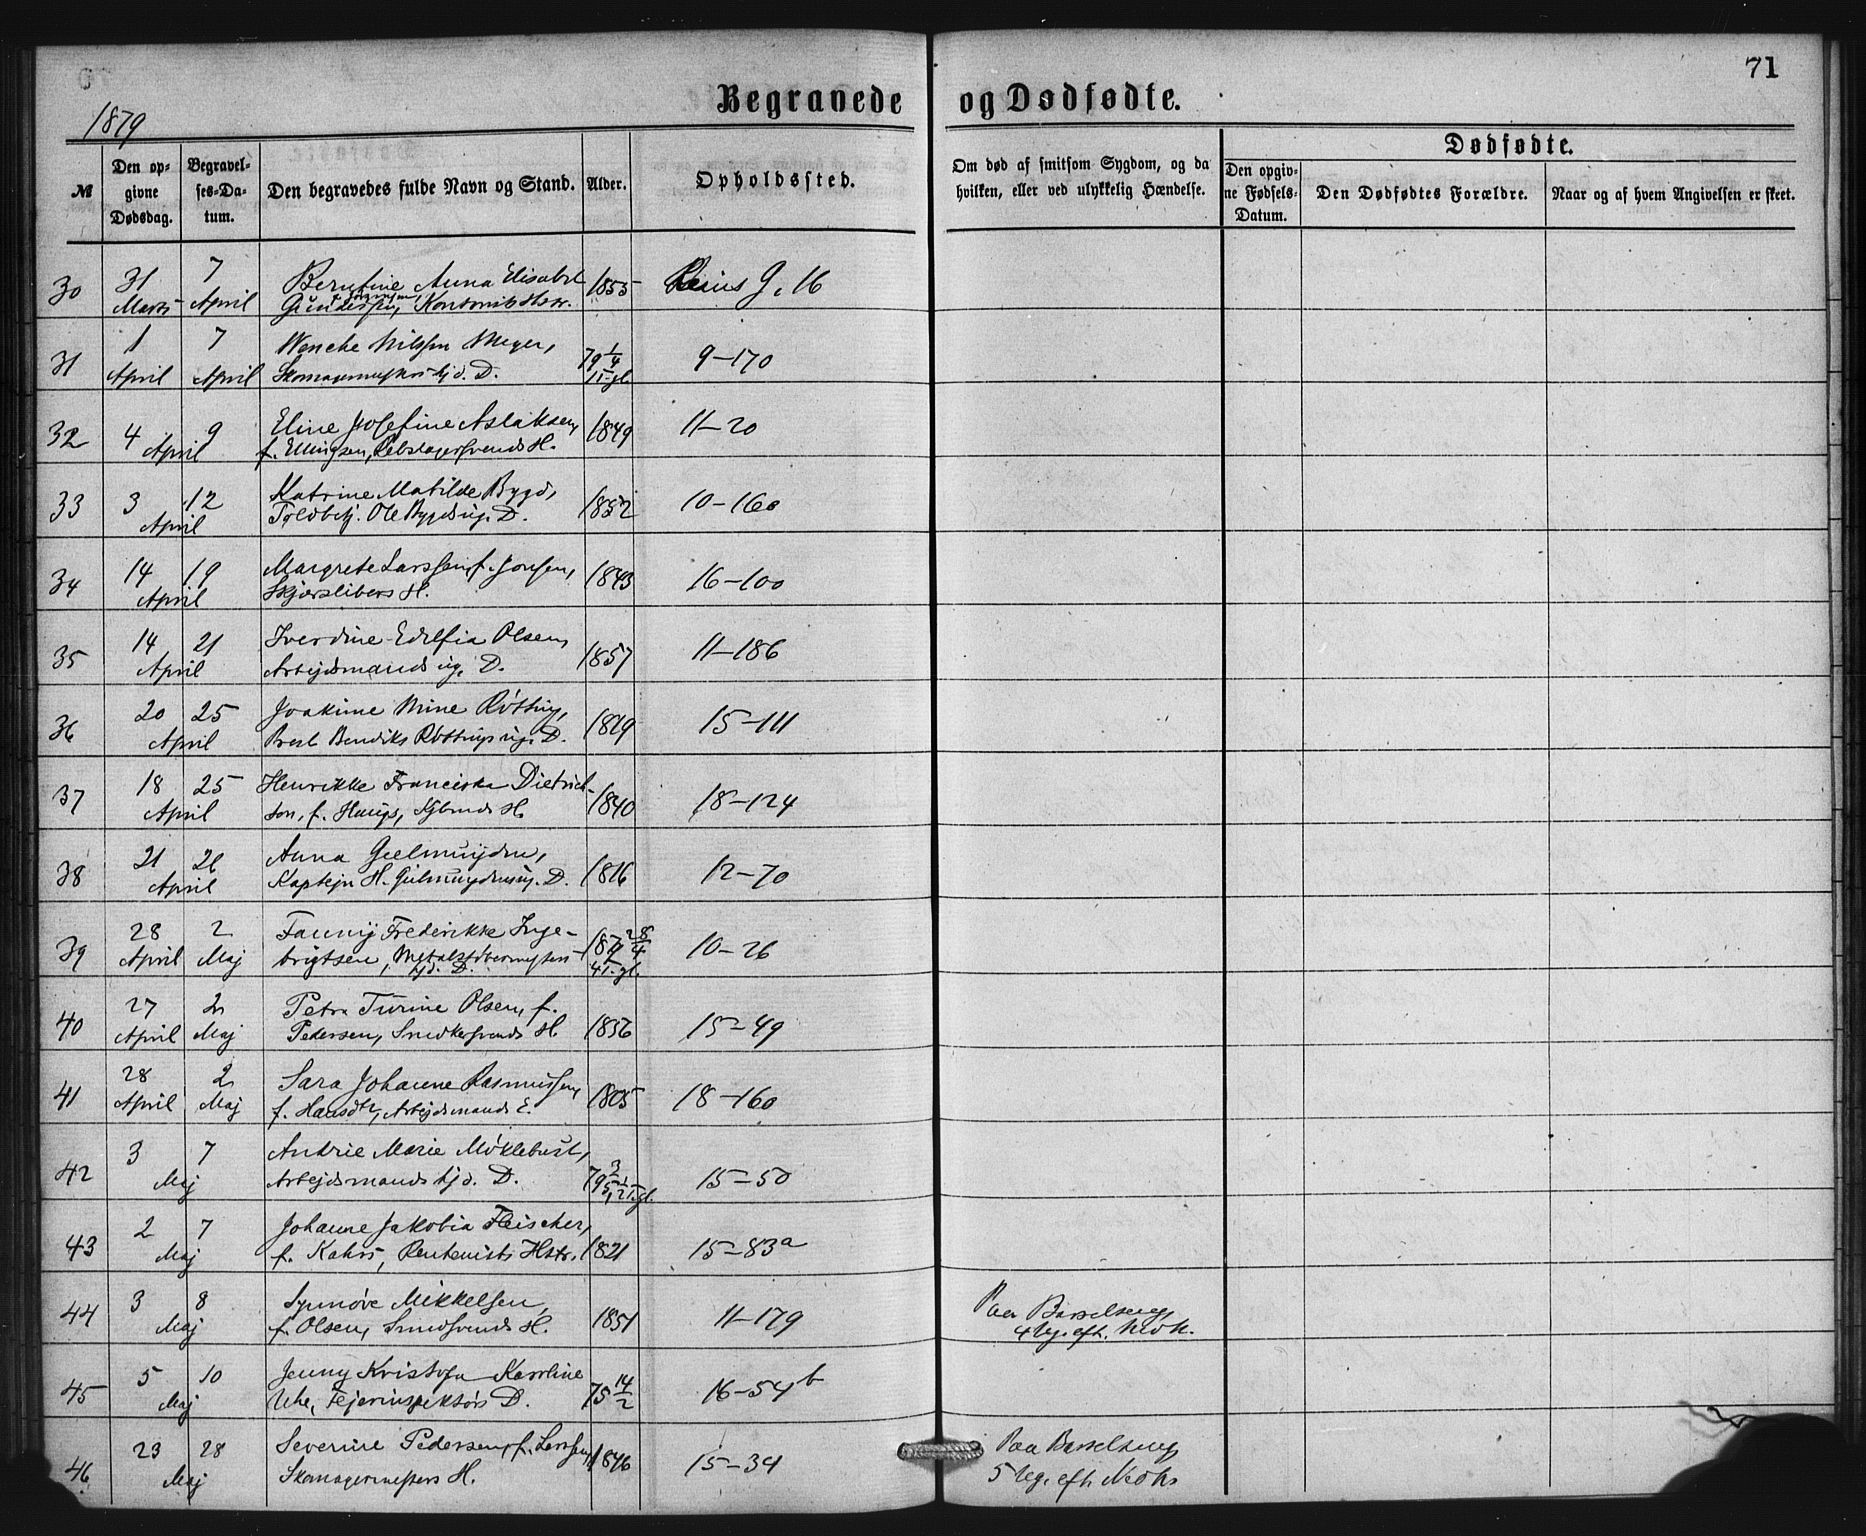 71
Begravede og Dødfødte.
1879
№
Den opgivne Dødsdag.
Begravelses-Datum.
Den begravedes fulde Navn og Stand.
Alder.
Opholdssted.
Om død af smitsom Sygdom, og da
hvilken, eller ved ulykkelig Hændelse.
Dødfødte.
Den opgivne Fødsels-Datum.
Den Dødfødtes Forældre.
Naar og af hvem Angivelsen er skeet.
30 31 Marts 7 April Anna Elisabet 1855 G. 16
Gundersen,
31 1 April 7 April Wenche Nilssen Meyer, 79 1/4 9–170
D.
32 4 9 April Eline Josefine Aslaksen, 1849 11–20
f. Ellingsen, Rebslagersvends H.
33 3 12 April Katrine Matilde Bygd, 1852 10–160
Toldbetj. Ole Bygds ug. D.
34 14 19 April Margrete Larssen, f. Jonsen, 1843 16–100
Skjærslibers H.
35 14 21 April Iverdine Edelfia Olsen, 1857 11–186
Arbejdsmands ug. D.
36 20 25 April Joakime Mine Røtting, 1819 15–111
Bendiks Røttings ug. D.
37 18 25 April Henrikke Franciska Dietrich- 1840 18–124
son, f. H.
38 21 26 April Anna Geelmuyden, 1816 12–70
Kaptejn H. Gelmuydens ug. D.
39 28 April 2 Maj Fanny Frederikke Inge- 28/4 10–26
brigtsen, D.
40 27 April 2 Maj Petra Turine Olsen, f. 1856 15–49
Pedersen, Snedkersvends H.
41 28 April 2 Maj Sara Johanne Rasmussen, 1805 18–160
f. Arbejdsmands E.
42 3 7 Maj Andrie Marie Møklebust, 79 15–50
Arbejdsmands D.
43 2 7 Maj Johanne Jakobia Fleischer, 1821 15–83a
f. Kahrs, Rentenists Hstr.
44 3 8 Maj Synnøve Mikkelsen, 1851 11–179 Paa Barselseng,
f. Olsen, Smedsvends H. 4 Ug. eft. Nedk.
45 5 10 Maj Jenny Kristofa Karoline 75 14/2 16–54b
Uhe, Fejerinspektørs D.
46 23 28 Maj Severine Pedersen, f. Larssen, 1846 15–34 Paa Barselseng
Skomagermesters H. 5 Ug. eft. Nedk.